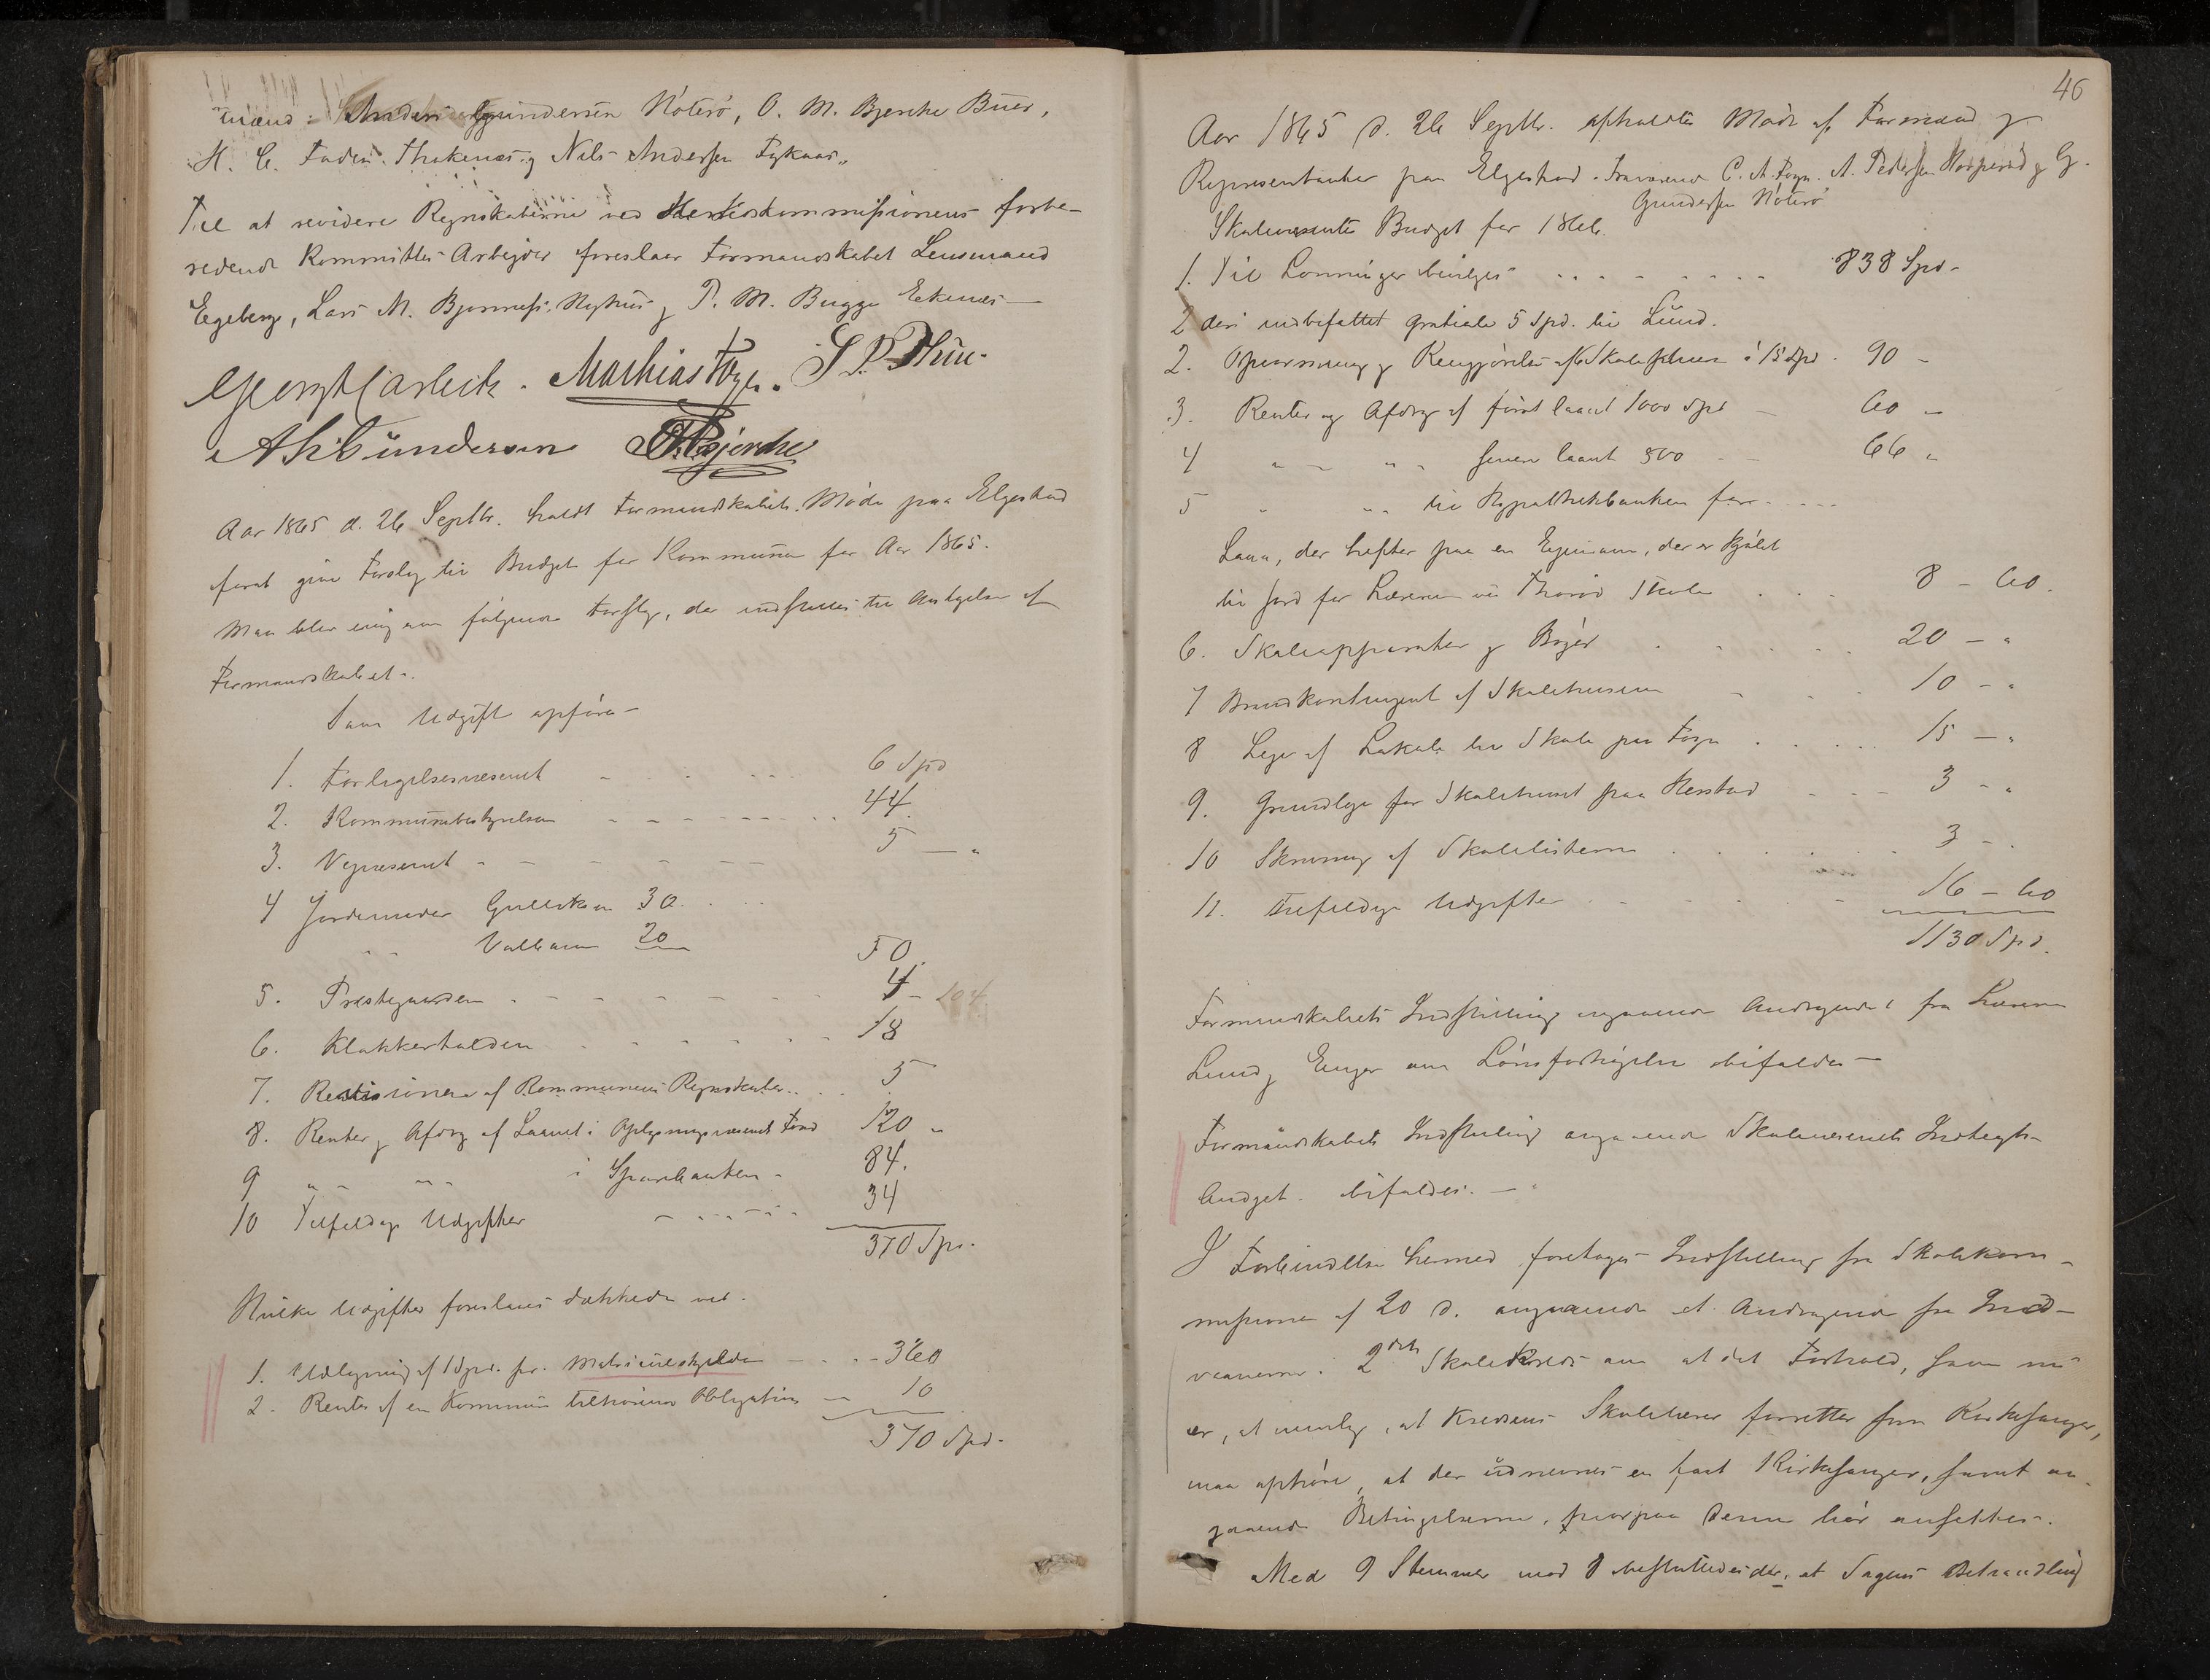 mænd: Anders Gundersen Nøterø, O. M. Bjerche Buer,
H. C. Foden Thokenæs og Nils Andersen Fyknar„
Til at revidere Regnskaberne ved Herredskommissionens forbe-
redende Kommitte-Arbejder foreslaar Formandskabet Lensmand
Egeberg, Lars M. Bjonness, Nyhus og P. M. Bugge Ekenæs —
Mathias Foyn. S P. Thue.
A H Gundersen OM Bjerche
Aar 1865 d. 26 Septbr. holdt Formandskabet Møde paa Elgestad
forat give Forslag til Budget for Kommunen for Aar 1865.
Man blev enig om følgende Forslag, der indstilles til Antagelse af
Formandskabet.
Som Udgift opføres
1. Forligelsesvæsenet 6 Spd
2. Kommunebestyrelsen 44
3. Vejvæsenet 5 — "
4 Jordemoder Gullikson 30
" Valborg 20 50
5. Præstegaarden 4 –
6. Klokkerholdet 18
7. Revisionen af Kommunens Regnskaber 5
8. Renter og Afdrag af Laanet i Oplysningsvæsenets Fond 120 "
9 " " i Sparebanken 84.
10 Tilfeldige Udgifter 34
370 Spd.
Hvilke Udgifter foreslaaes dækkede ved.
1. Udligning af 1 Spd. pr. Matriculskylden 360
2. Renter af en Kommunen tilhørende Obligation 10
370 Spd.
46
Aar 1865 d. 26 Septbr. afholdtes Møde af Formænd og
Repræsentanter paa Elgestad. Fraværende C. A. Foyn. A. Pedersen og G.
Gundersen Nøterø
Skolevæsenets Budget for 1866.
1. Til Lønninger bevilges 838 Spd.
2 deri indbefattet gratiale 5 Spd. til Lund.
2. Opvarmning og Rengjørelse af 6 Skolestuer á 15 Spd. 90 –
3. Renter og Afdrag af først laant 1000 Spd – 60 –
4 " " " senere laant 500 – 66 "
5 " " " til Hypothekbanken for
Laan, der hefter paa en Ejendom, der er kjøbt
til Jord for Læreren ved Thorød Skole 8 – 60.
6. Skoleapparater og Bøger 20 – "
7 Brandkontingent af Skolehusene 10 – "
8 Leje af Lokale til Skole paa Foyn 15 – "
9. Grundleje for Skolehuset paa Herstad 3 – "
10 Skrivning af Skolelisterne 3 –
11. Tilfeldige Udgifter 16 – 60
1130 Spd.
Formandskabets Indstilling angaaende Andragender fra Lærerne
Lund og Enger om Lønsforhøjelse bifaldes —
Formandskabets Indstilling angaaende Skolevæsenets Indtægts-
budget bifaldes. —
I Forbindelse hermed foretages Indstilling fra Skolekom-
missionen af 20 d. angaaende et Andragende fra Ind-
vaanerne i 2det Skolekreds om at det Forhold, som nu
er, at nemlig, at Kredsens Skolelærer forretter som Kirkesanger,
maa ophøre, at der udnevnes en fast Kirkesanger, samt an-
gaaende Betingelserne, hvorpaa denne bør ansettes.
Med 9 Stemmer mod 8 besluttedes der, at Sagens Behandling